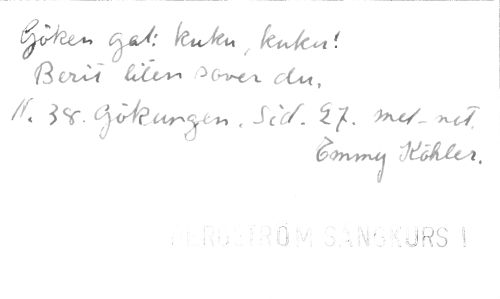 Göken gal: kuku, kuku!
Berit liten sover du.
N. 38. Gökungen. Sid. 27. mel-not.
Emmy Köhler.
BERGSTRÖM SÅNGKURS I